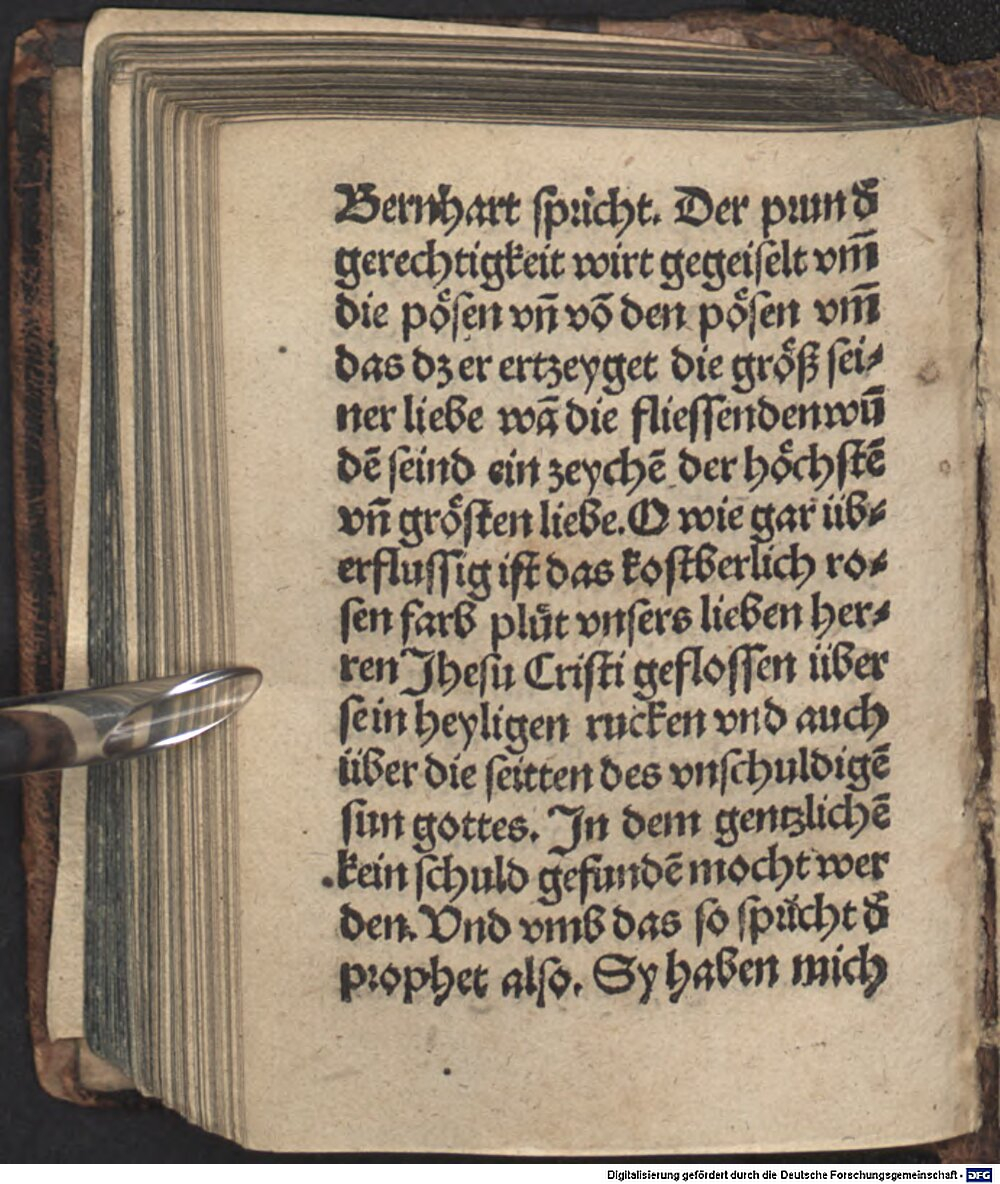 Bernhart spricht. Der prun đ
gerechtigkeit wirt gegeiselt vm̄
die poͤsen vn̄ vō den poͤsen vm̄
das dz er ertzeyget die groͤß sei⸗
ner liebe wā die fliessenden wū
dē seind ein zeychē der hoͤchstē
vn̄ groͤsten liebe. O wie gar üb⸗
erflussig ist das kostberlich ro⸗
sen farb plůt vnsers lieben her⸗
ren Jhesu Cristi geflossen über
sein heyligen rucken vnd auch
über die seitten des vnschuldigē
sun gottes. In dem gentzlichē
kein schuld gefundē mocht wer
den. Vnd vmb das so spricht đ
prophet also. Sy haben mich
Digitalisierung gefördert durch die Deutsche Forschungsgemeinschaft - DFG